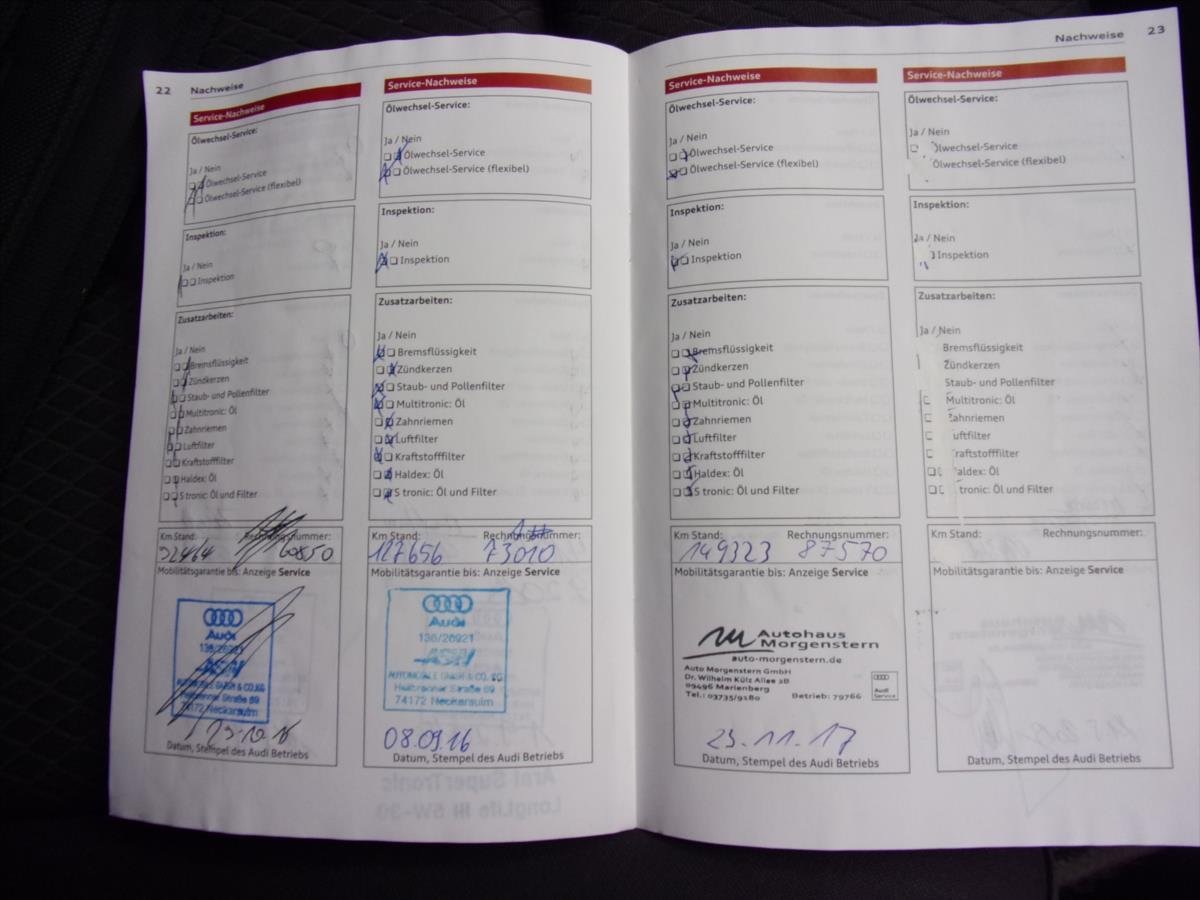 22 Nachweise
Service-Nachweise
Ölwechsel-Service:
Ja / Nein
Ölwechsel-Service
Ölwechsel-Service (flexibel)
Inspektion:
Ja / Nein
Inspektion
Zusatzarbeiten:
Ja / Nein
Bremsflüssigkeit
Zündkerzen
Staub- und Pollenfilter
Multitronic: Öl
Zahnriemen
Luftfilter
Kraftstofffilter
Haldex: Öl
S tronic: Öl und Filter
Km Stand: Rechnungsnummer:
92464 60850
Mobilitätsgarantie bis: Anzeige Service
Audi
136/26921
ASN
AUTOMOBILE GMBH & CO. KG
Heilbronner Straße 69
74172 Neckarsulm
Datum, Stempel des Audi Betriebs
Service-Nachweise
Ölwechsel-Service:
Ja / Nein
Ölwechsel-Service
Ölwechsel-Service (flexibel)
Inspektion:
Ja / Nein
Inspektion
Zusatzarbeiten:
Ja / Nein
Bremsflüssigkeit
Zündkerzen
Staub- und Pollenfilter
Multitronic: Öl
Zahnriemen
Luftfilter
Kraftstofffilter
Haldex: Öl
S tronic: Öl und Filter
Km Stand: Rechnungsnummer:
127656 73010
Mobilitätsgarantie bis: Anzeige Service
Audi
136/26921
ASN
AUTOMOBILE GMBH & CO. KG
Heilbronner Straße 69
74172 Neckarsulm
08.09.16
Datum, Stempel des Audi Betriebs
Nachweise 23
Service-Nachweise
Ölwechsel-Service:
Ja / Nein
Ölwechsel-Service
Ölwechsel-Service (flexibel)
Inspektion:
Ja / Nein
Inspektion
Zusatzarbeiten:
Ja / Nein
Bremsflüssigkeit
Zündkerzen
Staub- und Pollenfilter
Multitronic: Öl
Zahnriemen
Luftfilter
Kraftstofffilter
Haldex: Öl
S tronic: Öl und Filter
Km Stand: Rechnungsnummer:
149323 87570
Mobilitätsgarantie bis: Anzeige Service
Autohaus
Morgenstern
auto-morgenstern.de
Auto Morgenstern GmbH
Dr. Wilhelm Külz Allee 2B
09496 Marienberg
Tel.: 03735/9180 Betrieb: 79766
Audi
Service
23.11.17
Datum, Stempel des Audi Betriebs
Service-Nachweise
Ölwechsel-Service:
Ja / Nein
lwechsel-Service
Ölwechsel-Service (flexibel)
Inspektion:
Ja / Nein
Inspektion
Zusatzarbeiten:
Ja / Nein
Bremsflüssigkeit
Zündkerzen
Staub- und Pollenfilter
Multitronic: Öl
ahnriemen
uftfilter
raftstofffilter
aldex: Öl
tronic: Öl und Filter
Km Stand: Rechnungsnummer:
Mobilitätsgarantie bis: Anzeige Service
Datum, Stempel des Audi Betriebs